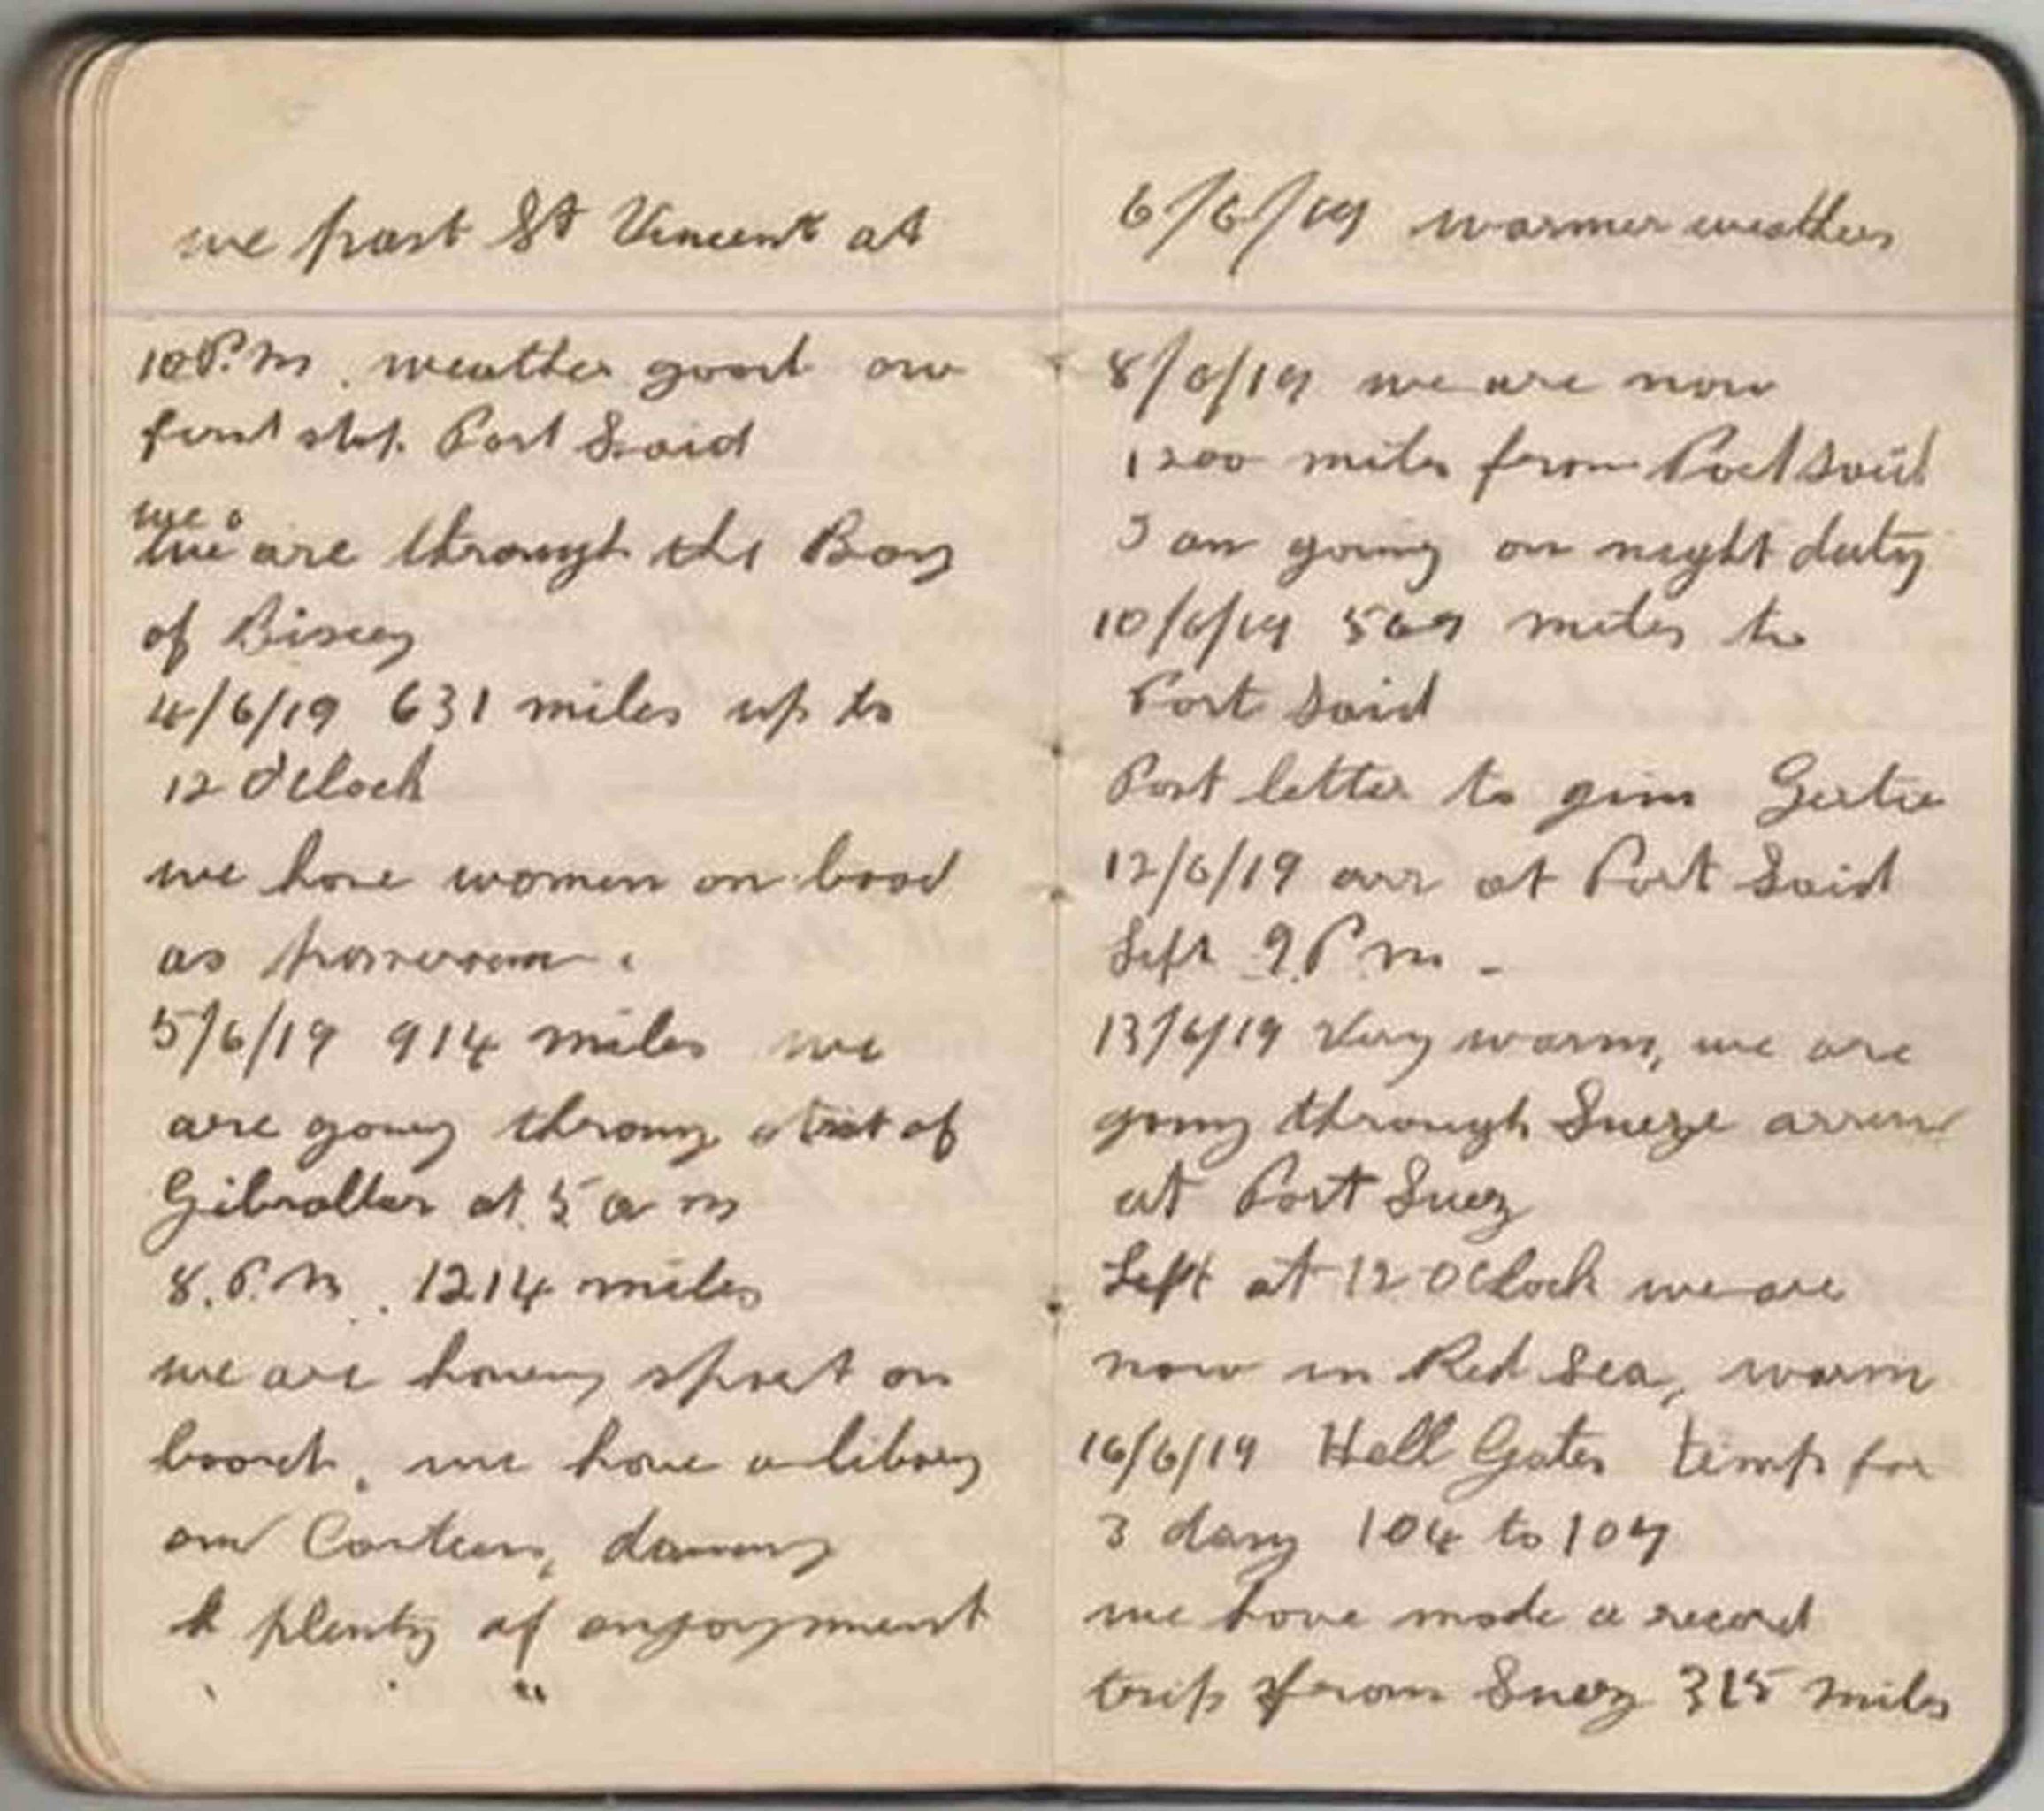 we past St Vincent at
10 P.m. weather good our
first stop Port Said
we
we are through the Bay
of Biscay
4/6/19 631 miles up to
12 O'Clock
we have women on board
as
5/6/19 914 miles we
are going throug strait of
Gibraltar at 5 a m
8. P.m. 1214 miles
we are having sport on
board, we have a libary
and Canteen, dancing
& plenty of enjoyment
6/6/19 warmer weather
8/6/19 we are now
1200 miles from Port Said
I am going on night duty
10/6/19 569 miles to
Port Said
Post letter to gim Gertie
12/6/19 arr at Port Said
Left 9 P m -
13/6/19 Very warm, we are
going through Sueze arrive
at Port Suez
Left at 12 OClock we are
now in Red Sea, warm
16/6/19 Hell Gates temp for
3 days 104 to 107
we have made a record
trip from Suez 315 miles